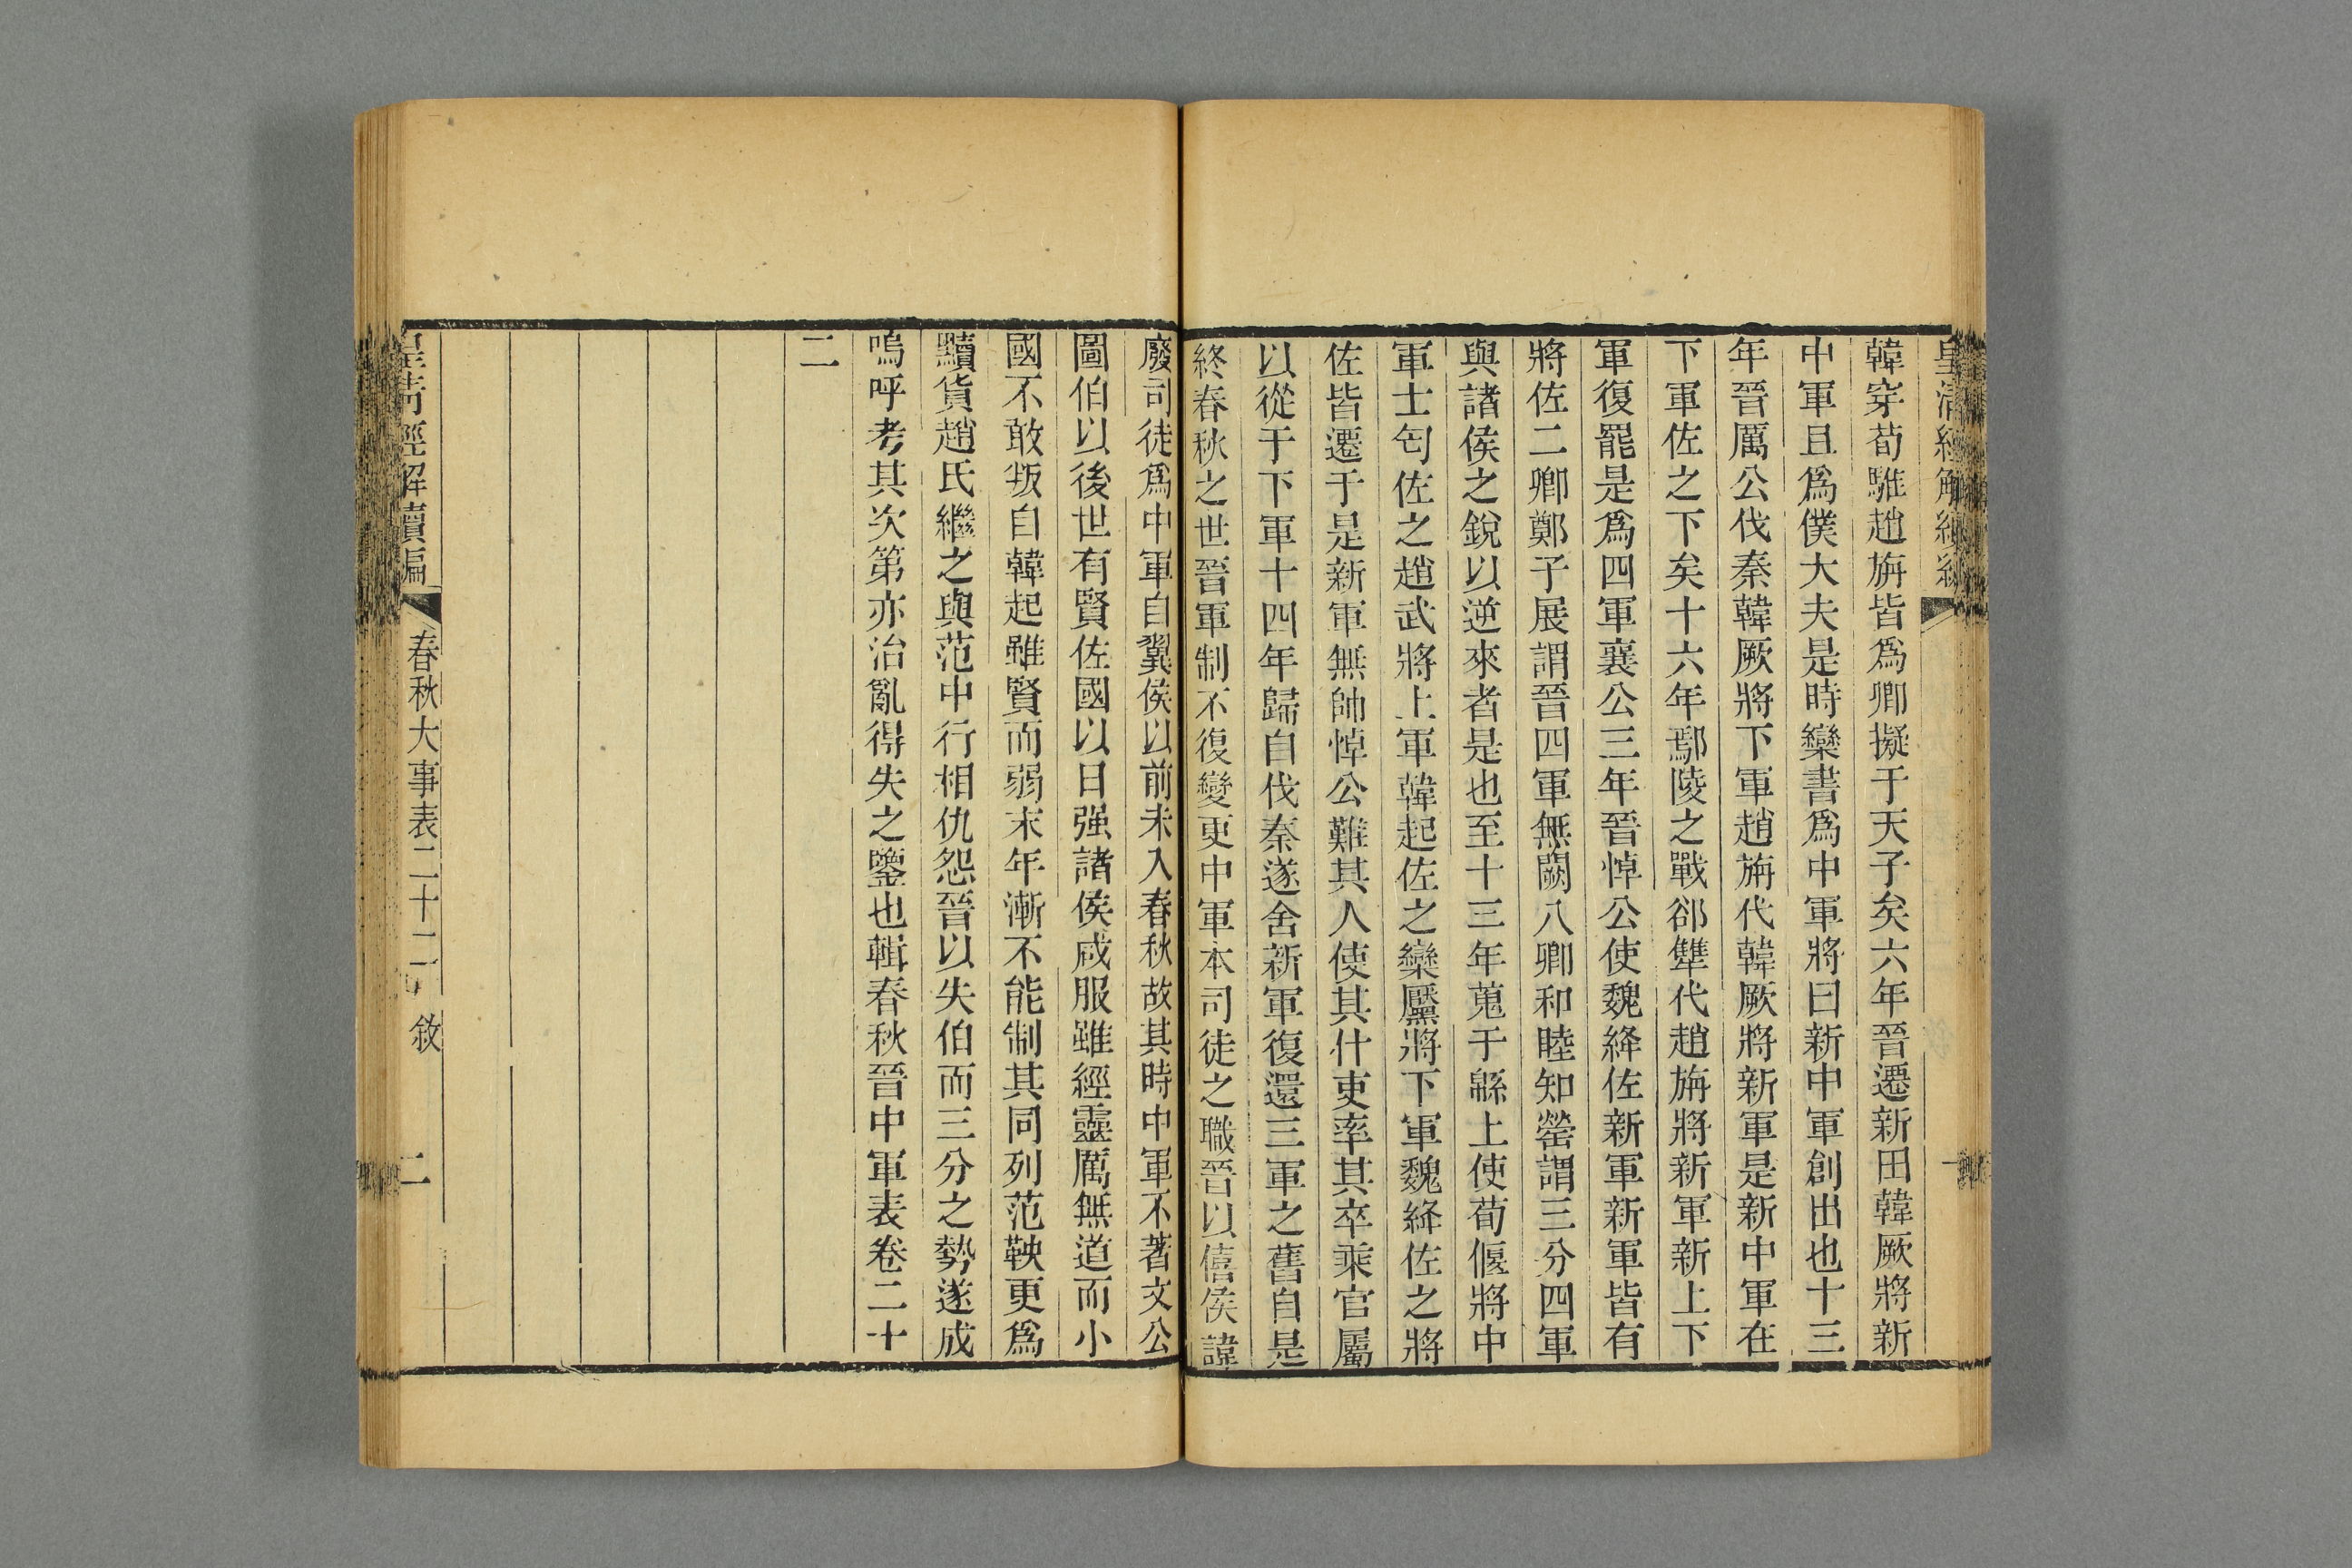 皇清經解續編
韓穿荀騅趙旃皆爲卿擬于天子矣六年晉遷新田韓厥將新
中軍且爲僕大夫是時欒書爲中軍將曰新中軍創出也十三
年晉厲公伐秦韓厥將下軍趙旃代韓厥將新軍是新中軍在
下軍佐之下矣十六年鄢陵之戰郤犨代趙旃將新軍新上下
軍復罷是爲四軍襄公三年晉悼公使魏絳佐新軍新軍皆有
將佐二卿鄭子展謂晉四軍無闕八卿和睦知罃謂三分四軍
與諸侯之銳以逆來者是也至十三年蒐于緜上使荀偃將中
軍士匄佐之趙武將上軍韓起佐之欒黶將下軍魏絳佐之將
佐皆遷于是新軍無帥悼公難其人使其什吏率其卒乘官屬
以從于下軍十四年歸自伐秦遂舍新軍復還三軍之舊自是
終春秋之世晉軍制不復變更中軍本司徒之職晉以僖侯諱
廢司徒爲中軍自翼侯以前未入春秋故其時中軍不著文公
圖伯以後世有賢佐國以日强諸侯咸服雖經靈厲無道而小
國不敢叛自韓起雖賢而弱末年漸不能制其同列范鞅更爲
黷貨趙氏繼之與范中行相仇怨晉以失伯而三分之勢遂成
嗚呼考其次第亦治亂得失之鑒也輯春秋晉中軍表卷二十
二
皇清經解續編 春秋大事表二十二 敘 二